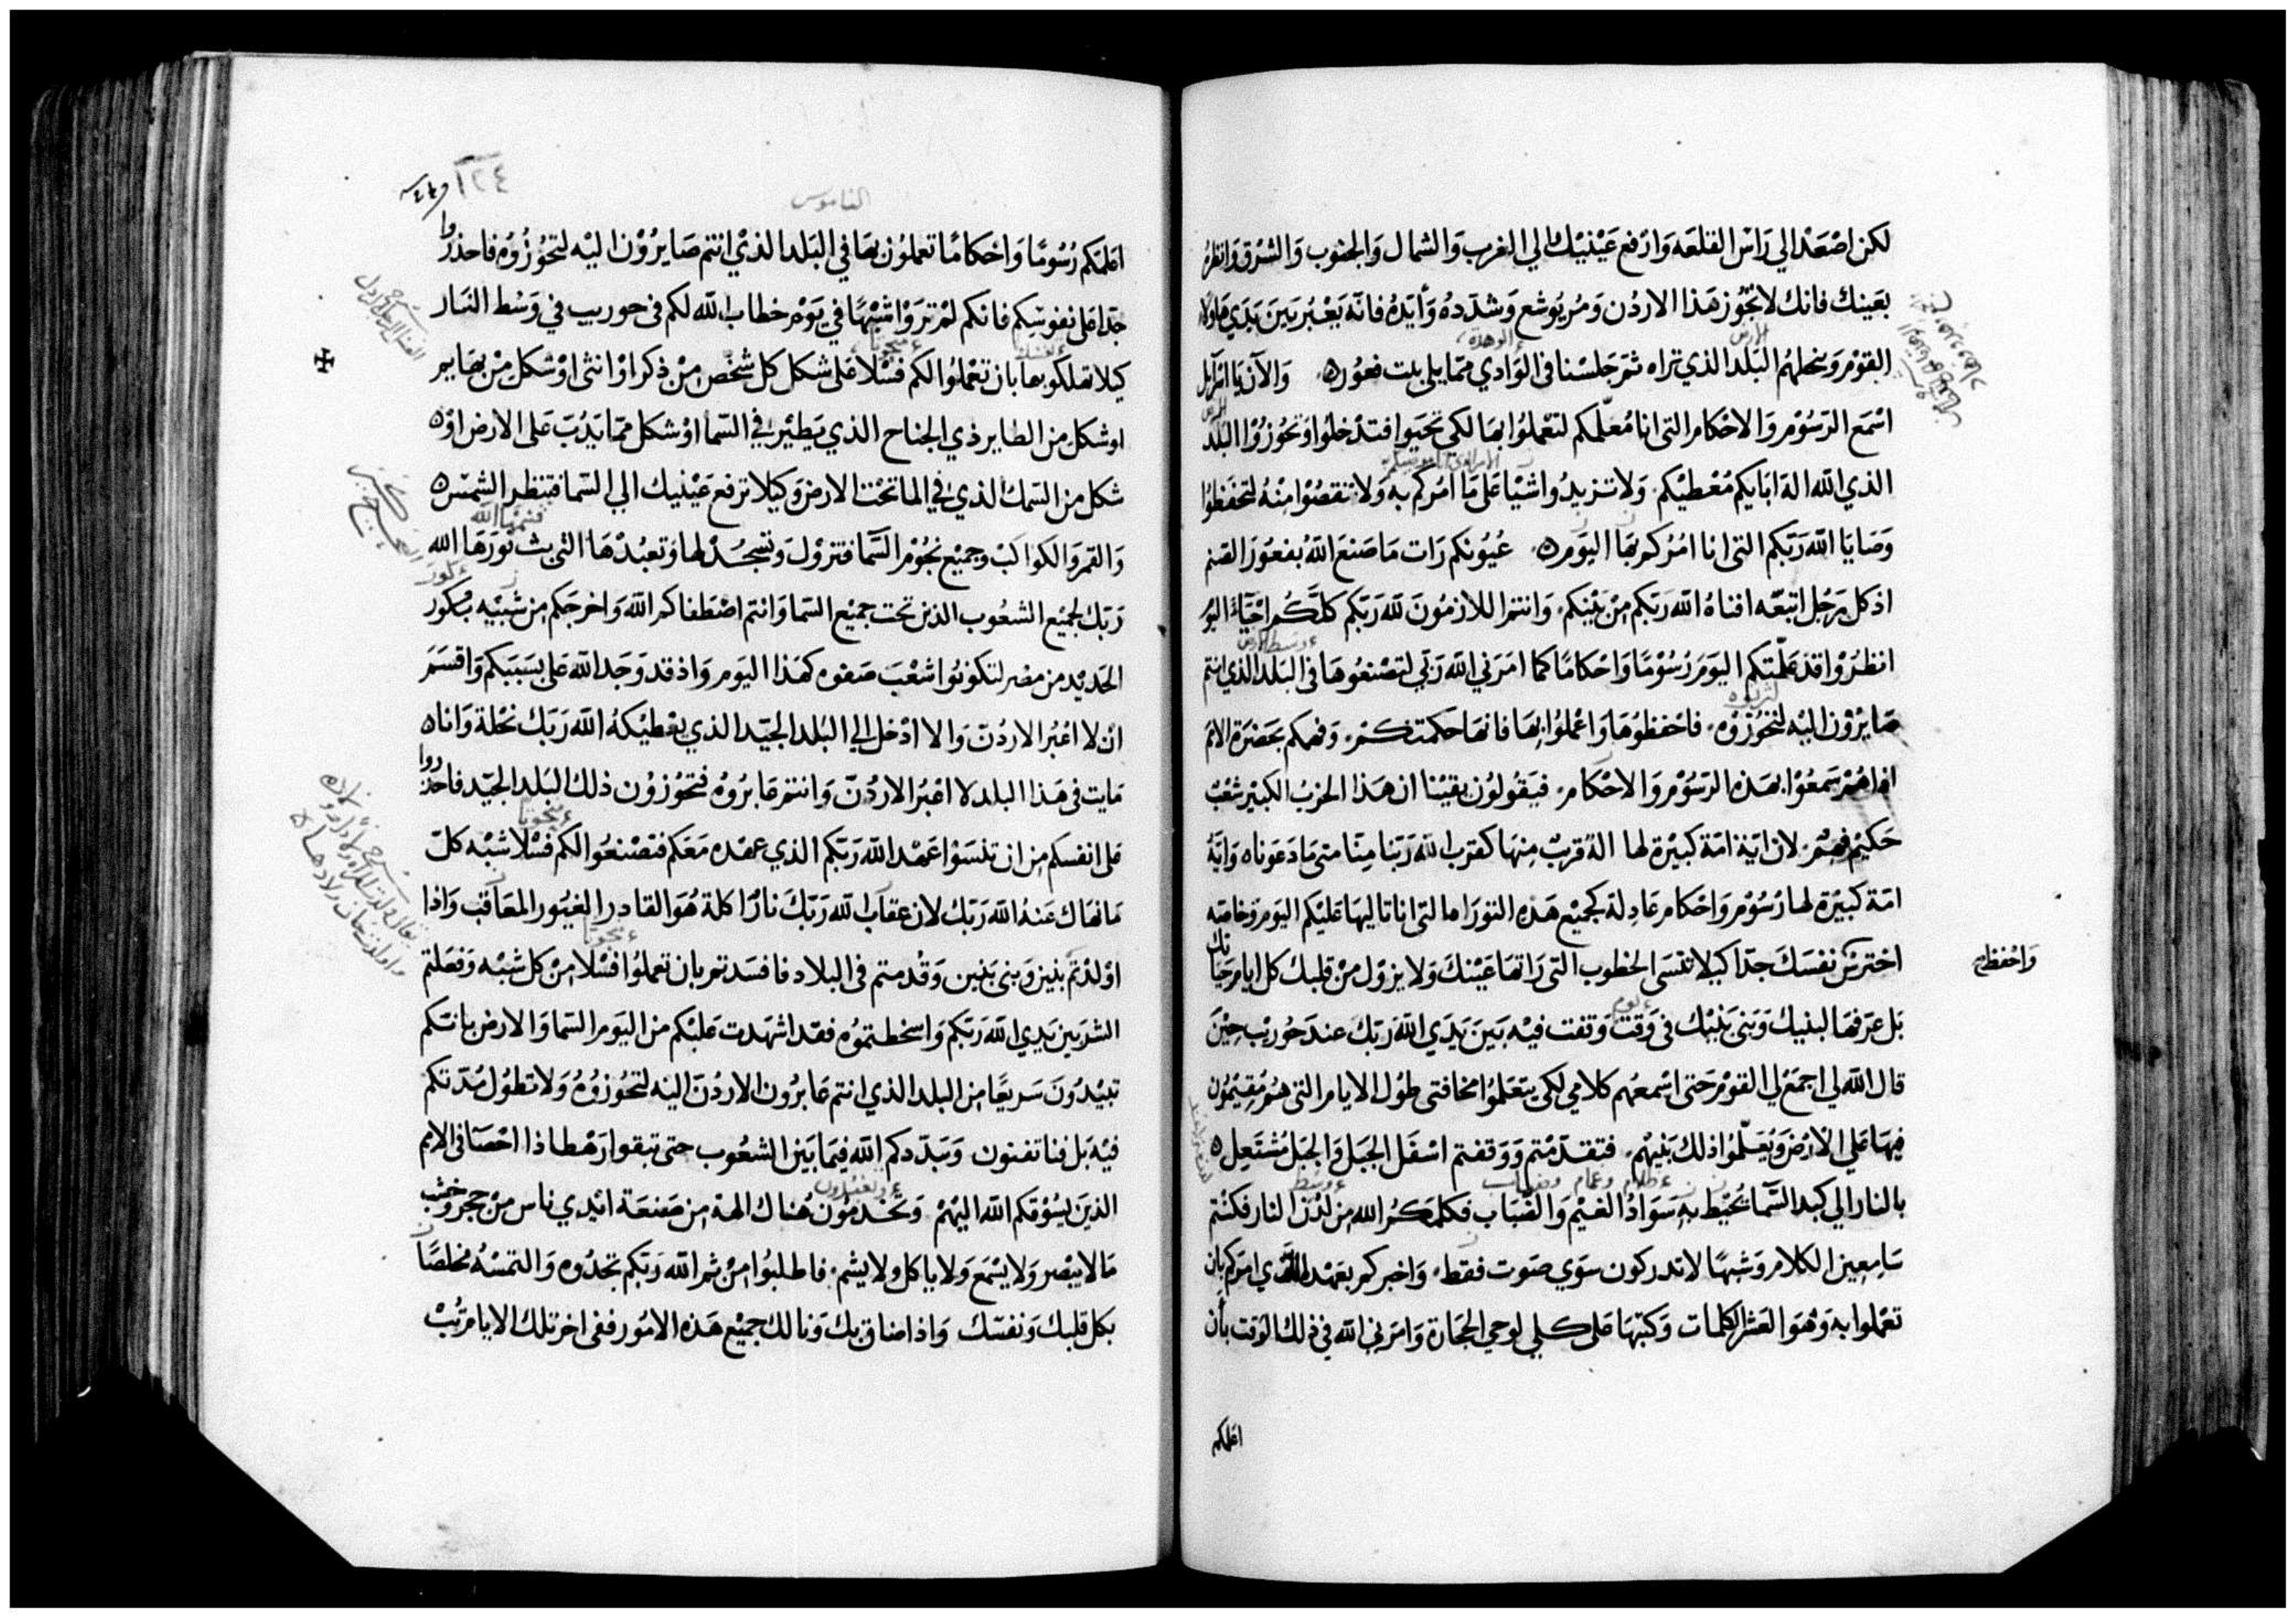 لكن اصْعَدْ الي رَاسْ القلعَه وَارَفع عَيْنيْك الي الغرب وَالشمال وَالجنوب وَالشرْق وَانظرْ
بعَينك فانك لا تجُوز هَذا الاردُن وَمُر يوُشع وَشدّدهُ وَأيّدهُ فانّه يَعْبُر بَين يَدَي هَاولا
القوْم وَينحلهُم البَلد الذي تراه ثمّ جَلسْنا في الوَادي ممّا يلي بيت فعوُر ه وَالآن يَا اسْرآيل
اسْمَع الرّسُوْم وَالاحْكام التي انا مُعلّمكم لتعْملوُا بهَا لكي تحيَوا فتدْخلوُا وَتحُوزوُا البَلَد
الذي الله الهَ ابَايكم مُعْطيْكم وَلا تزيدُوا شيْيا عَلى مَا امُركم به وَلا تنقصُوْا مِنْهُ لتحفظوُا
وَصَايَا الله رَبّكم التي انا امُرُكم بهَا اليَوم ه عُيوُنكم رَات مَا صَنعَ اللهُ بفعوُرَ الصَنم
اذ كل رَجُل اتبعّه افناهُ الله رَبّكم مِنْ بَيْنكم وَانتم اللازمُونَ لله رَبّكم كلّكُم احْيَآء اليوْم
انظرُوْا قد عَلّمتكم اليوَم رُسُوْمًا وَاحْكامًا كما امَرَني الله رَبّي لتصْنعُوهَا في البَلد الذي انتم
صَايرْوُن اليْه لتحُوزوُه فاحْفظوُهَا وَاعْملوُا بهَا فانهَا حكمتكم وَفهمكم بحَضرَة الامَم
اذا هُمْ سَمعُوْا بهَذه الرّسُوْم وَالاحْكام فيَقوُلوُن يقيْنا ان هَذا الحزبُ الكبيْر شعْبٌ
حَكيْم فهِمْ لان ايّة امّة كبيْرة لها الهٌ قريبٌ منهَا كقرب الله رَبّنا مِنّا متى مَا دَعَوناه وَايّةُ
امّة كبيْرة لها رُسُوْم وَاحْكام عَادِلة كجميْع هَذه التوْرَاه التي انا تاليهَا عَليْكم اليَوم وَخاصّه
احْترسْ نفسَكَ جدّا كيْلا تنْسَى الخطوُب التي رَاتهَا عَيْنكَ وَلا يزوْل منْ قلبك كل ايام حيَاتك
وَاحْفظ
بَل عَرّفهَا لبنيك وَبَني بَنيْك في وَقت وَقفت فيْه بَينَ يَدَي الله رَبّكَ عندَ حُورِيْب حِيْنَ
قال الله لي اجمَعْ لي القوْم حَتى اسْمعُهم كلامي لكي يتعَلّموُا مخافتي طوُل الايام التي هُم مُقيْمُون
فيهَا عَلي الارْض وَيُعَلّموُا ذلك بَنيْهمْ فتقدّمتم وَوَقفتم اسْفَل الجبَل وَالجبَل مُشتعِل ه
بالنار الي كبد السّمَا يُحيْط به سَوَادُ الغيْم وَالضّبَاب فكلّمَكُم الله مِن لدُن النار فكنْتم
سَامعِين الكلام وَشبهًا لا تدركون سوَي صَوت فقط وَاخبركم بعَهْده الذي امَركم بان
تعْملوا به وَهوَ العَشر الكلمات وَكتبهَا عَلى كلي لوحي الحجَارة وَامَرني الله في ذلك الوَقت بأن
اعلمكم
١٢٤
القاموس
اعَلمكم رُسُومًا وَاحْكامًا تعملوُن بهَا في البَلد الذيْ انتم صَايرُوْن اليْه لتحُوْزُوُه فاحذرُوا
جدّا عَلى نفوسكم فانكم لمْ ترَوْا شبْهًا في يَوْم خطاب الله لكم في حوريب في وَسْط النّار
كيلا تهلكوها بان تعْملوُا لكم فسْلا عَلى شكل كل شخص مِنْ ذكر اوْ انثى اوْ شكل مِنْ بهَايم
او شكل من الطاير ذي الجناح الذي يَطيْر في السّما اوْ شكل ممّا يَدُبّ عَلى الارض اوْ ه
شكل من السّمك الذي في الما تحْت الارض وَكيلا ترفع عَيْنيك الي السّما فتنظر الشمْس ه
وَالقمر وَالكواكبْ وَجميْع نجُوْم السّما فتزوْل وَتسْجُدْ لها وَتعبُدْهَا التي بث نوْرَهَا الله
رَبّك لجميْع الشعُوب الذين تحت جميْع السّما وَانتم اصْطفاكم الله وَاخرجَكم من شبيْه بكور
الحَديْد من مصْر لتكونوُا شعْبَ صَفوه كهَذا اليَوم وَاذ قد وَجَد الله عَلى بسَببكم وَاقسَمَ
انْ لا اعْبُر الاردُنَ وَالا ادْخل الي البَلد الجيّد الذي يعْطيْكهُ الله رَبّك نحْلة وَانا ه
مَايت في هَذا البلد لا اعْبُر الاردُنّ وَانتم عَابرُوهُ فتحُوْزوُن ذلك البَلد الجيّد فاحذروا
عَلى انفسكم من ان تنسَوْا عَهْد الله رَبّكم الذي عهْده مَعَكم فتصْنعُوا لكم فسْلا شبْه كلّ
مَا نهَاك عَنهُ الله رَبّك لان عقابُ الله رَبّكَ نارٌ اكلة هُوَ القادر الغيوُر المعَاقب وَاذا
اوْلدْتم بَنيْن وَبني بَنيْن وَقدُمتم في البلاد فافسَدتم بان تعملوُا فسْلا منْ كل شبْه وَفعَلتم
الشر بَين يَدي الله رَبّكم وَاسخطتموُه فقد اشهَدت عَليْكم من اليَوم السّما وَالارض بانكم
تبيْدوُنَ سَريْعًا من البلد الذي انتم عَابرُون الاردُنّ اليْه لتحُوزوُهُ وَلا تطوُل مُدّتكم
فيْه بَل فنا تفنون وَيَبدّدكم الله فيمَا بَين الشعُوب حتى تبقوا رَهْطا ذا احْصَآ في الامم
الذيَن يسُوْقكم الله اليْهمْ وَتخدموُن هُناك الهة من صَنعَة ايْدي ناس منْ حجر وَخشب
مَا لا يبْصر وَلا يسْمَع وَلا ياكل ولا يشم فاطلبوُا منْ ثم الله رَبّكم تجدُوه وَالتمسْهُ مخلصًا
بكل قلبك وَنفسْك وَاذا ضاق بك وَنالك جميْع هَذه الامُور ففي اخر تلك الايام تُبْ